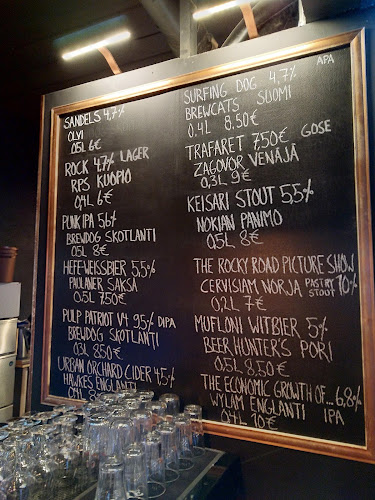 SANDELS 4,7%
OLVI
0,5L 6€
ROCK 4,7% LAGER
RPS KUOPIO
0,4L 6€
PUNK IPA 5,6%
BREWDOG SKOTLANTI
0,5L 8€
HEFE-WEISSBIER 5,5%
PAULANER SAKSA
0.5L 7,50€
PULP PATRIOT V4 9,5% DIPA
BREWDOG SKOTLANTI
0,3L 8,50€
URBAN ORCHARD CIDER 4,5%
HAWKES ENGLANTI
0,4L
SURFING DOG 4,7% APA
BREWCATS SUOMI
0,4L 8.50€
TRAFARET 7,50€ GOSE
ZAGOVOR VENÄJÄ
0,3L 9€
KEISARI STOUT 5,5%
NOKIAN PANIMO
0,5L 8€
THE ROCKY ROAD PICTURE SHOW
CERVISIAM NORJA PASTRY STOUT 10%
0,2L 7€
MUFLONI WITBIER 5%
BEER HUNTER'S PORI
0,5L 8.50€
THE ECONOMIC GROWTH OF... 6,8%
WYLAM ENGLANTI IPA
0,4L 10€